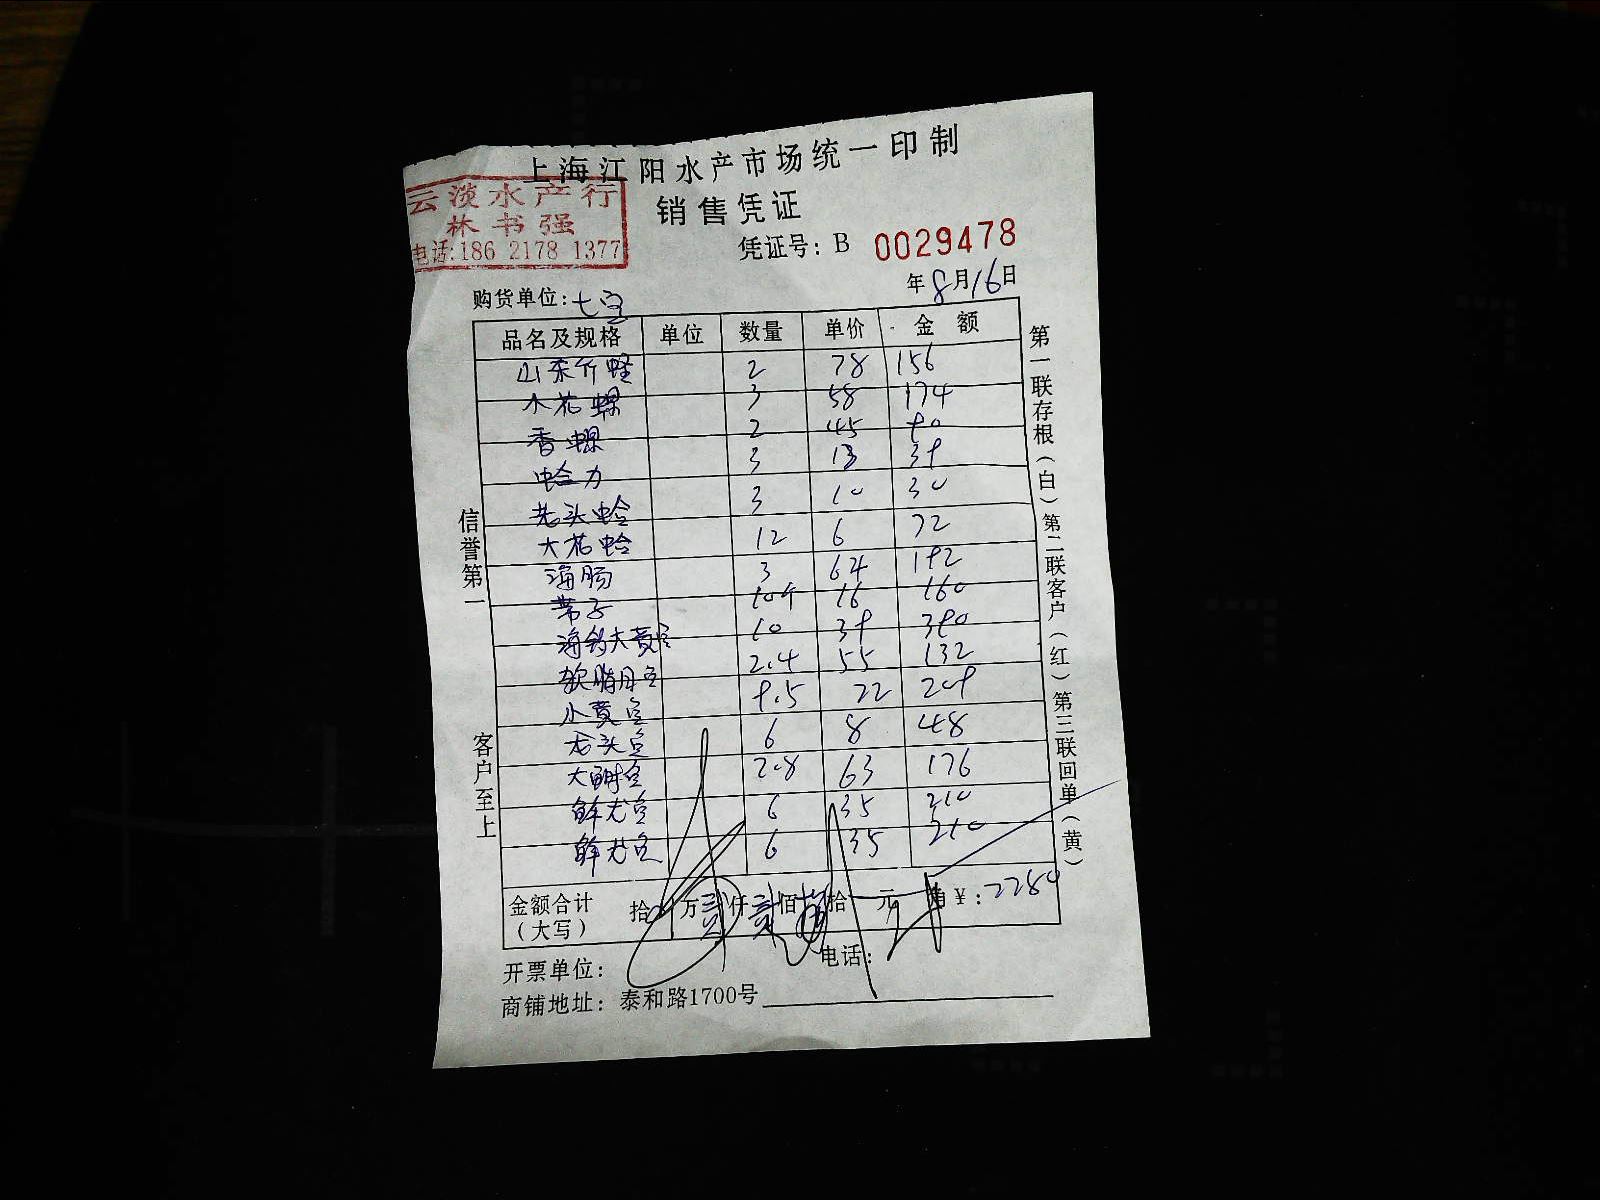 上海江阳水产市场统一印制
云淡水产行
林书强
电话:186 2178 1377
销售凭证
凭证号: B 0029478
年8月16日
购货单位: 七宝
品名及规格 单位 数量 单价 金额
山东竹蛏 2 78 156
木花螺 3 58 174
香螺 2 45 90
蛤力 3 13 39
老头蛤 3 10 30
大花蛤 12 6 72
海肠 3 64 192
带子 10斤 16 160
海钓大黄鱼 10 39 390
2.4 55 132
小黄鱼 9.5 22 209
龙头鱼 6 8 48
2.8 63 176
6 35 210
6 35 210
金额合计 拾 万 贰 仟 贰 佰 拾 元 角 ¥: 2280
(大写)
开票单位: 电话:
商铺地址: 泰和路1700号
信誉第一
客户至上
第一联存根(白) 第二联客户(红) 第三联回单(黄)